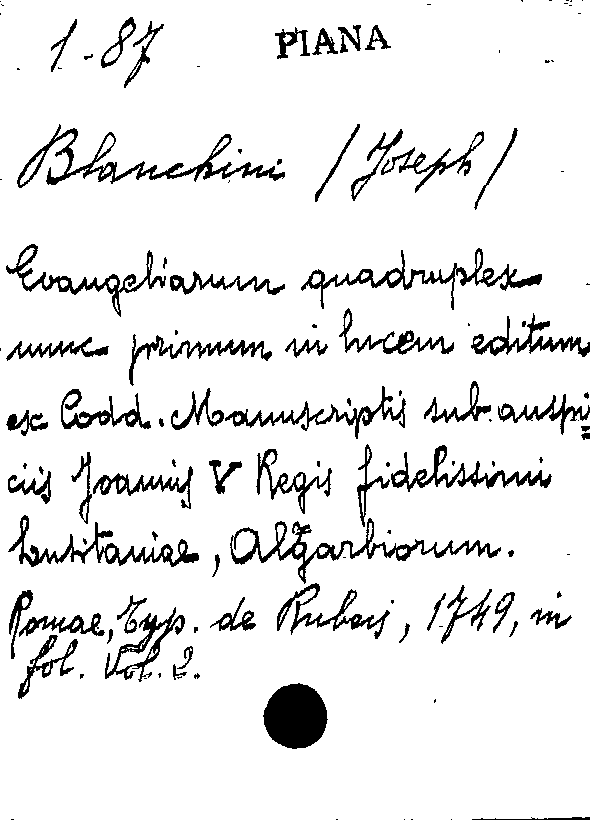 1-87 PIANA
Blanchini (Joseph)
Evangeliarum quadruplex
nunc primum in lucem editum
ex Codd. Manuscriptis sub auspi=
ciis Joannis V Regis fidelissimi
Lusitaniae, Algarbiorum.
Romae, Typ. de Rubeis, 1749, in
fol. Vol. 2.